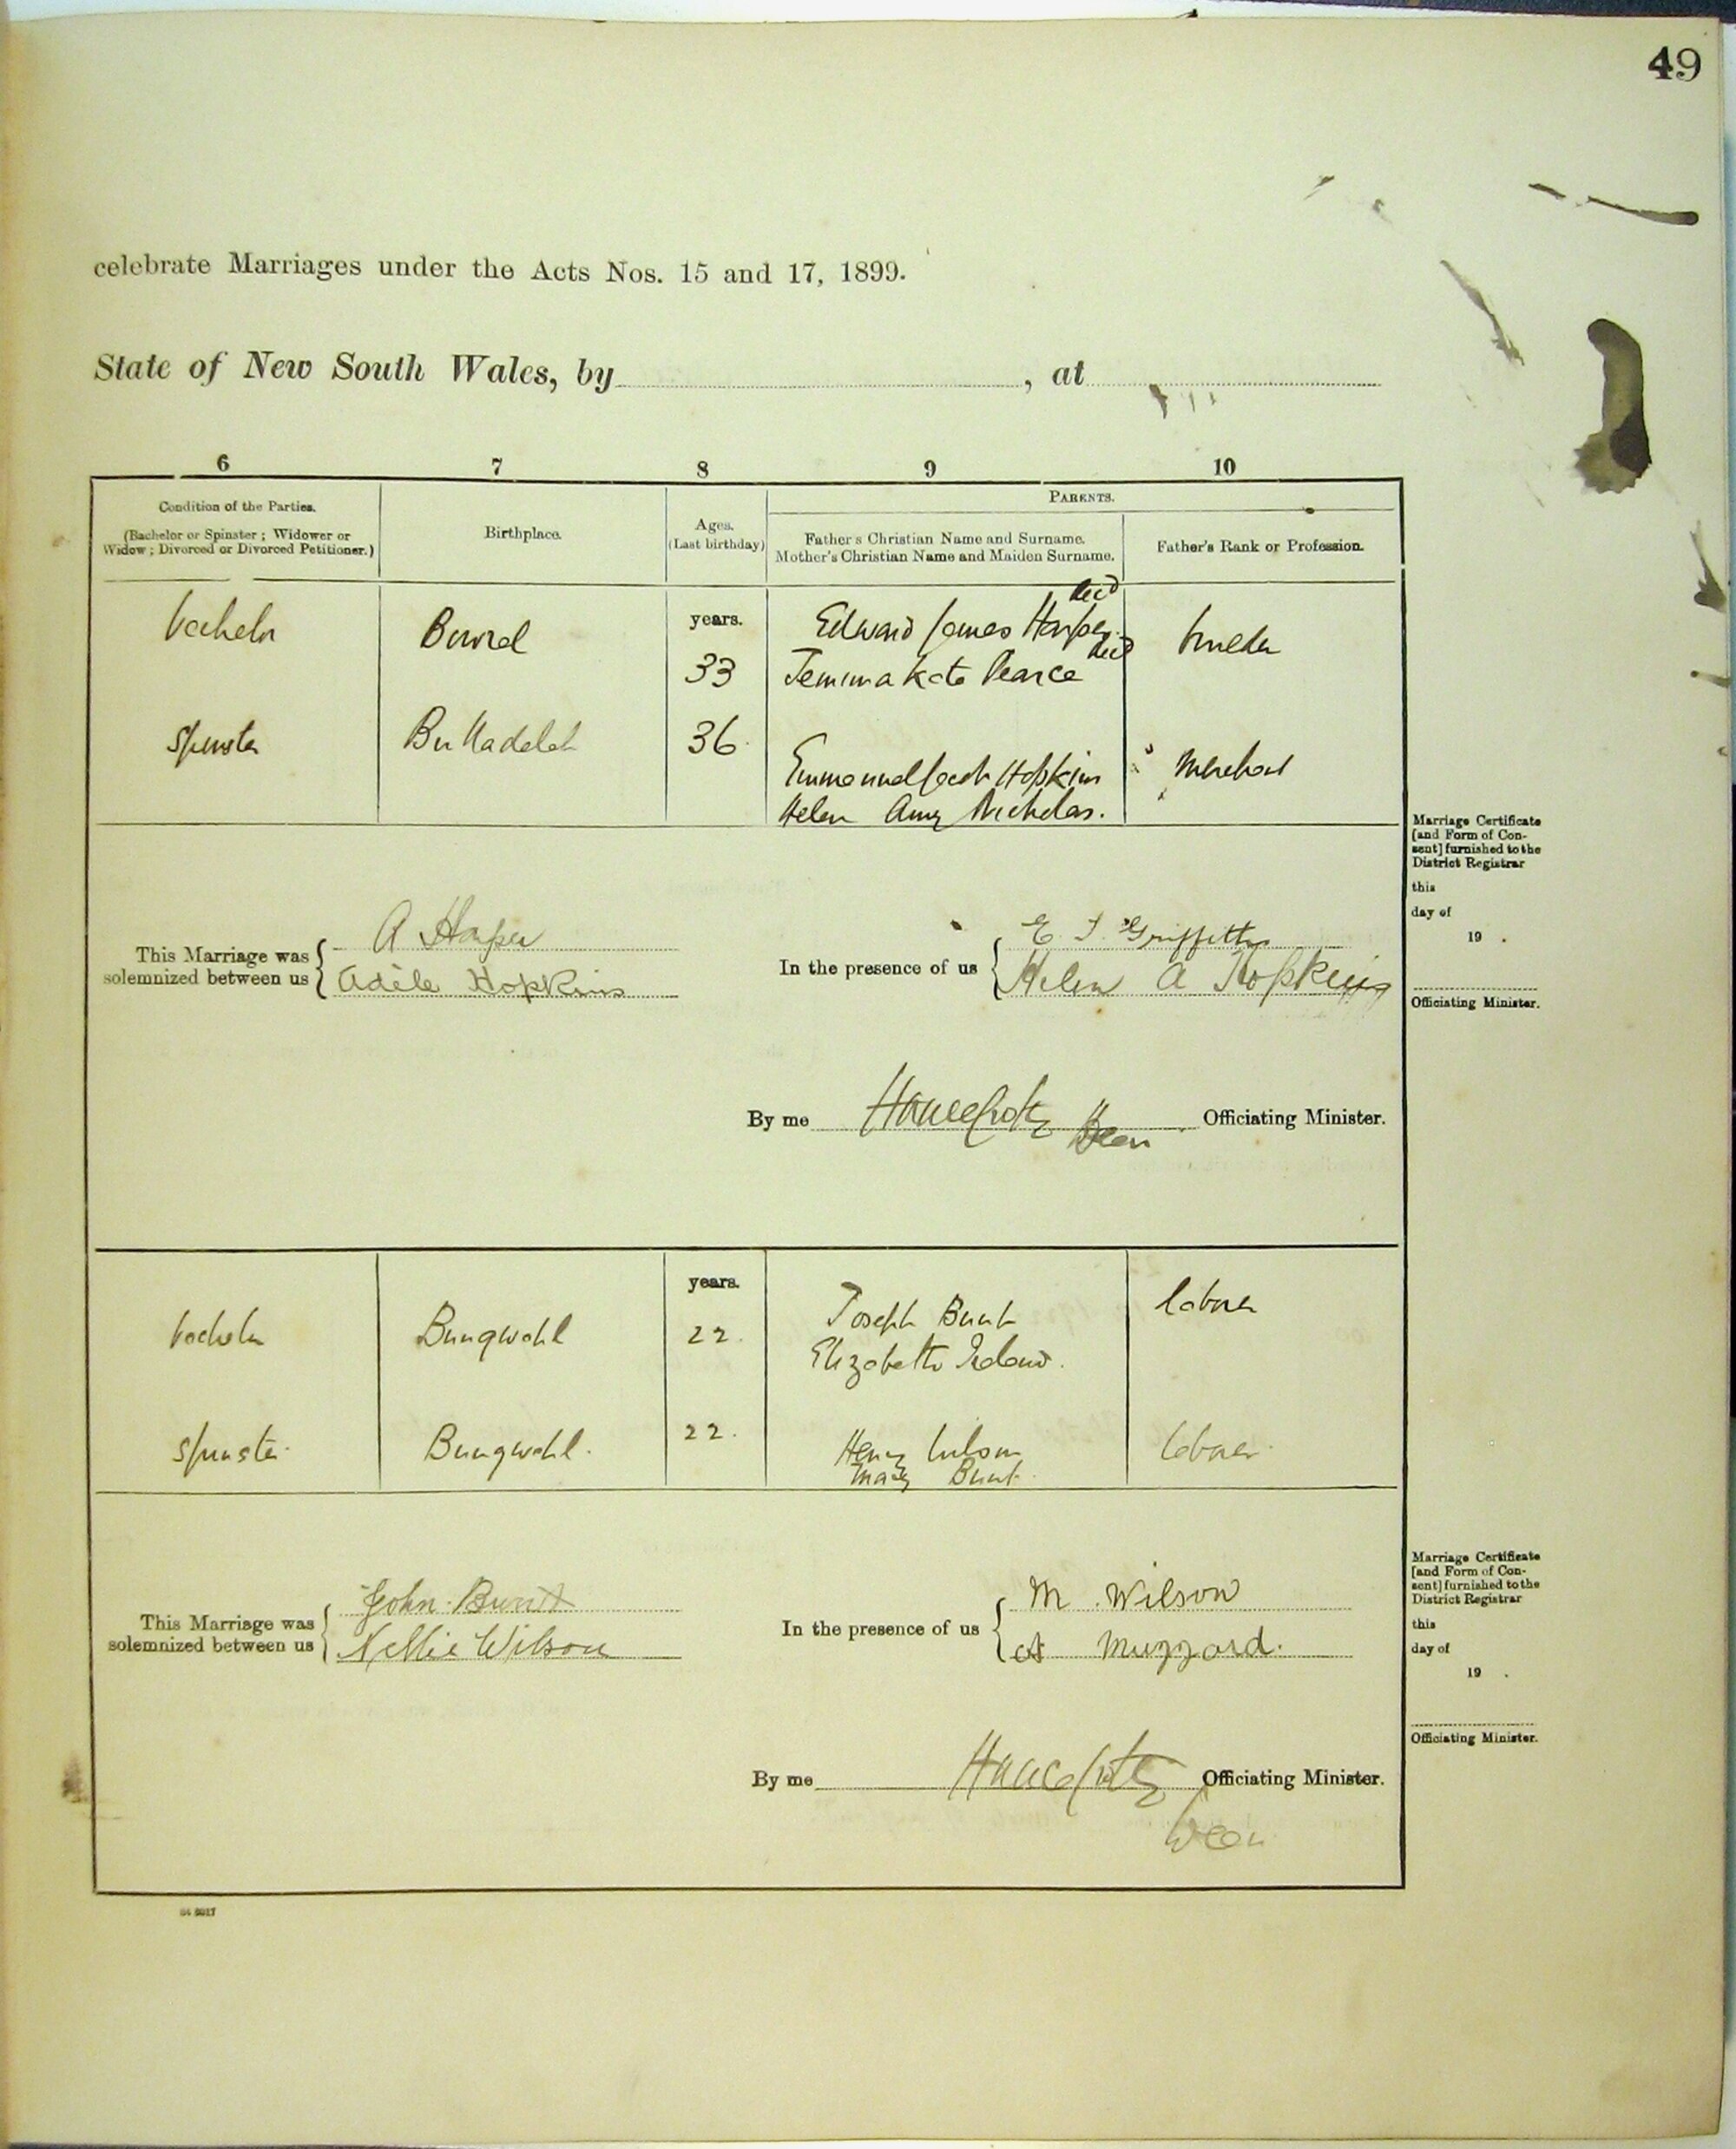 49
celebrate Marriages under the Acts Nos. 15 and 17, 1899.
State of New South Wales, by , at
6 7 8 9 10
Condition of the Parties.
(Bachelor or Spinster ; Widower or
Widow ; Divorced or Divorced Petitioner.)
Birthplace.
Ages.
(Last birthday)
PARENTS.
Father's Christian Name and Surname.
Mother's Christian Name and Maiden Surname.
Father's Rank or Profession.
bachelor
Bowral
years.
33
decd
Edward James Harper
decd
Jemima Kate Pearce
builder
spinster
Bulladelah
36
Emmanuel Jacob Hopkins
Helen Amy Nicholas.
Merchant
Marriage Certificate
[and Form of Con-
sent] furnished to the
District Registrar
this
day of
19 .
Officiating Minister.
This Marriage was
solemnized between us
A Harper
Adele Hopkins
In the presence of us
E. J. Griffiths
Helen A Hopkins
By me Officiating Minister.
bachelor
Bungwahl
years.
22.
Joseph Bunt
Elizabeth Ireland.
laborer
spinster
Bungwahl.
22.
Henry Wilson
Mary Bunt
laborer
This Marriage was
solemnized between us
John Bunt
Nellie Wilson
In the presence of us
M. Wilson
Muggard.
Marriage Certificate
[and Form of Con-
sent] furnished to the
District Registrar
this
day of
19 .
Officiating Minister.
By me Officiating Minister.